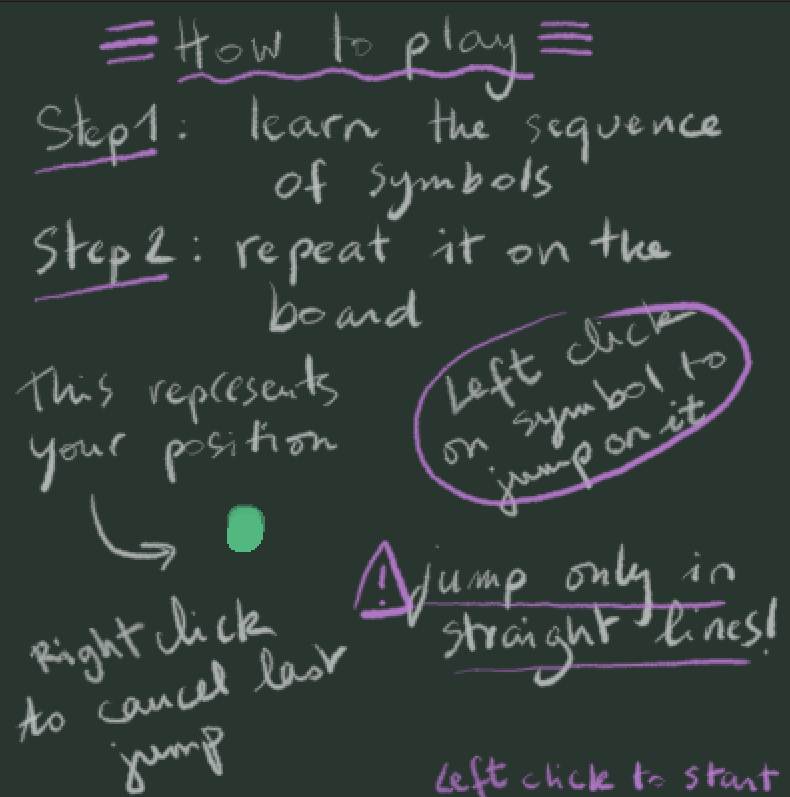 How to play
Step1: learn the sequence
of symbols
Step2: repeat it on the
board
Left click
on symbol to
jump on it
This represents
your position
jump only in
straight lines!
Right click
to cancel last
jump
Left click to start